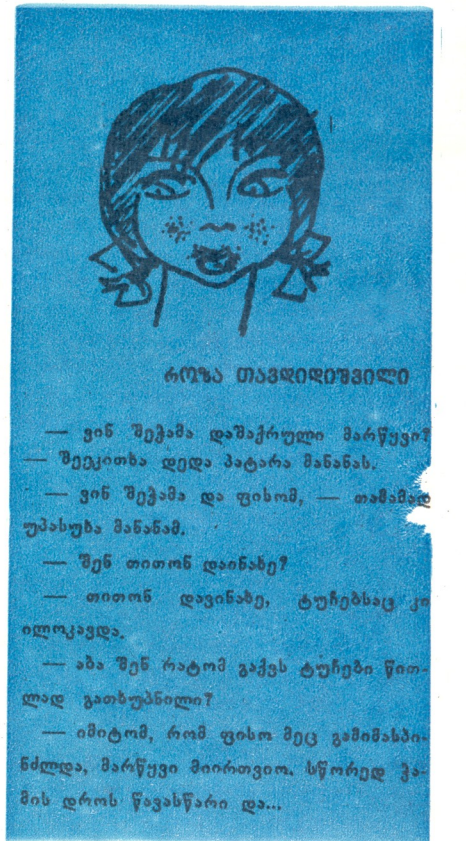 როზა თავდიდიშვილი
— ვინ შეჭამა დაშაქრული მარწყვი?
— შეეკითხა დედა პატარა მანანას.
— ვინ შეჭამა და ფისომ, — თამამად
უპასუხა მანანამ.
— შენ თითონ დაინახე?
— თითონ დავინახე, ტუჩებსაც კი
ილოკავდა.
— აბა შენ რატომ გაქვს ტუჩები წით-
ლად გათხუპნილი?
— იმიტომ, რომ ფისო მეც გამიმასპი-
ნძლდა, მარწყვი მიირთვიო. სწორედ ჭა-
მის დროს წავასწარი და...